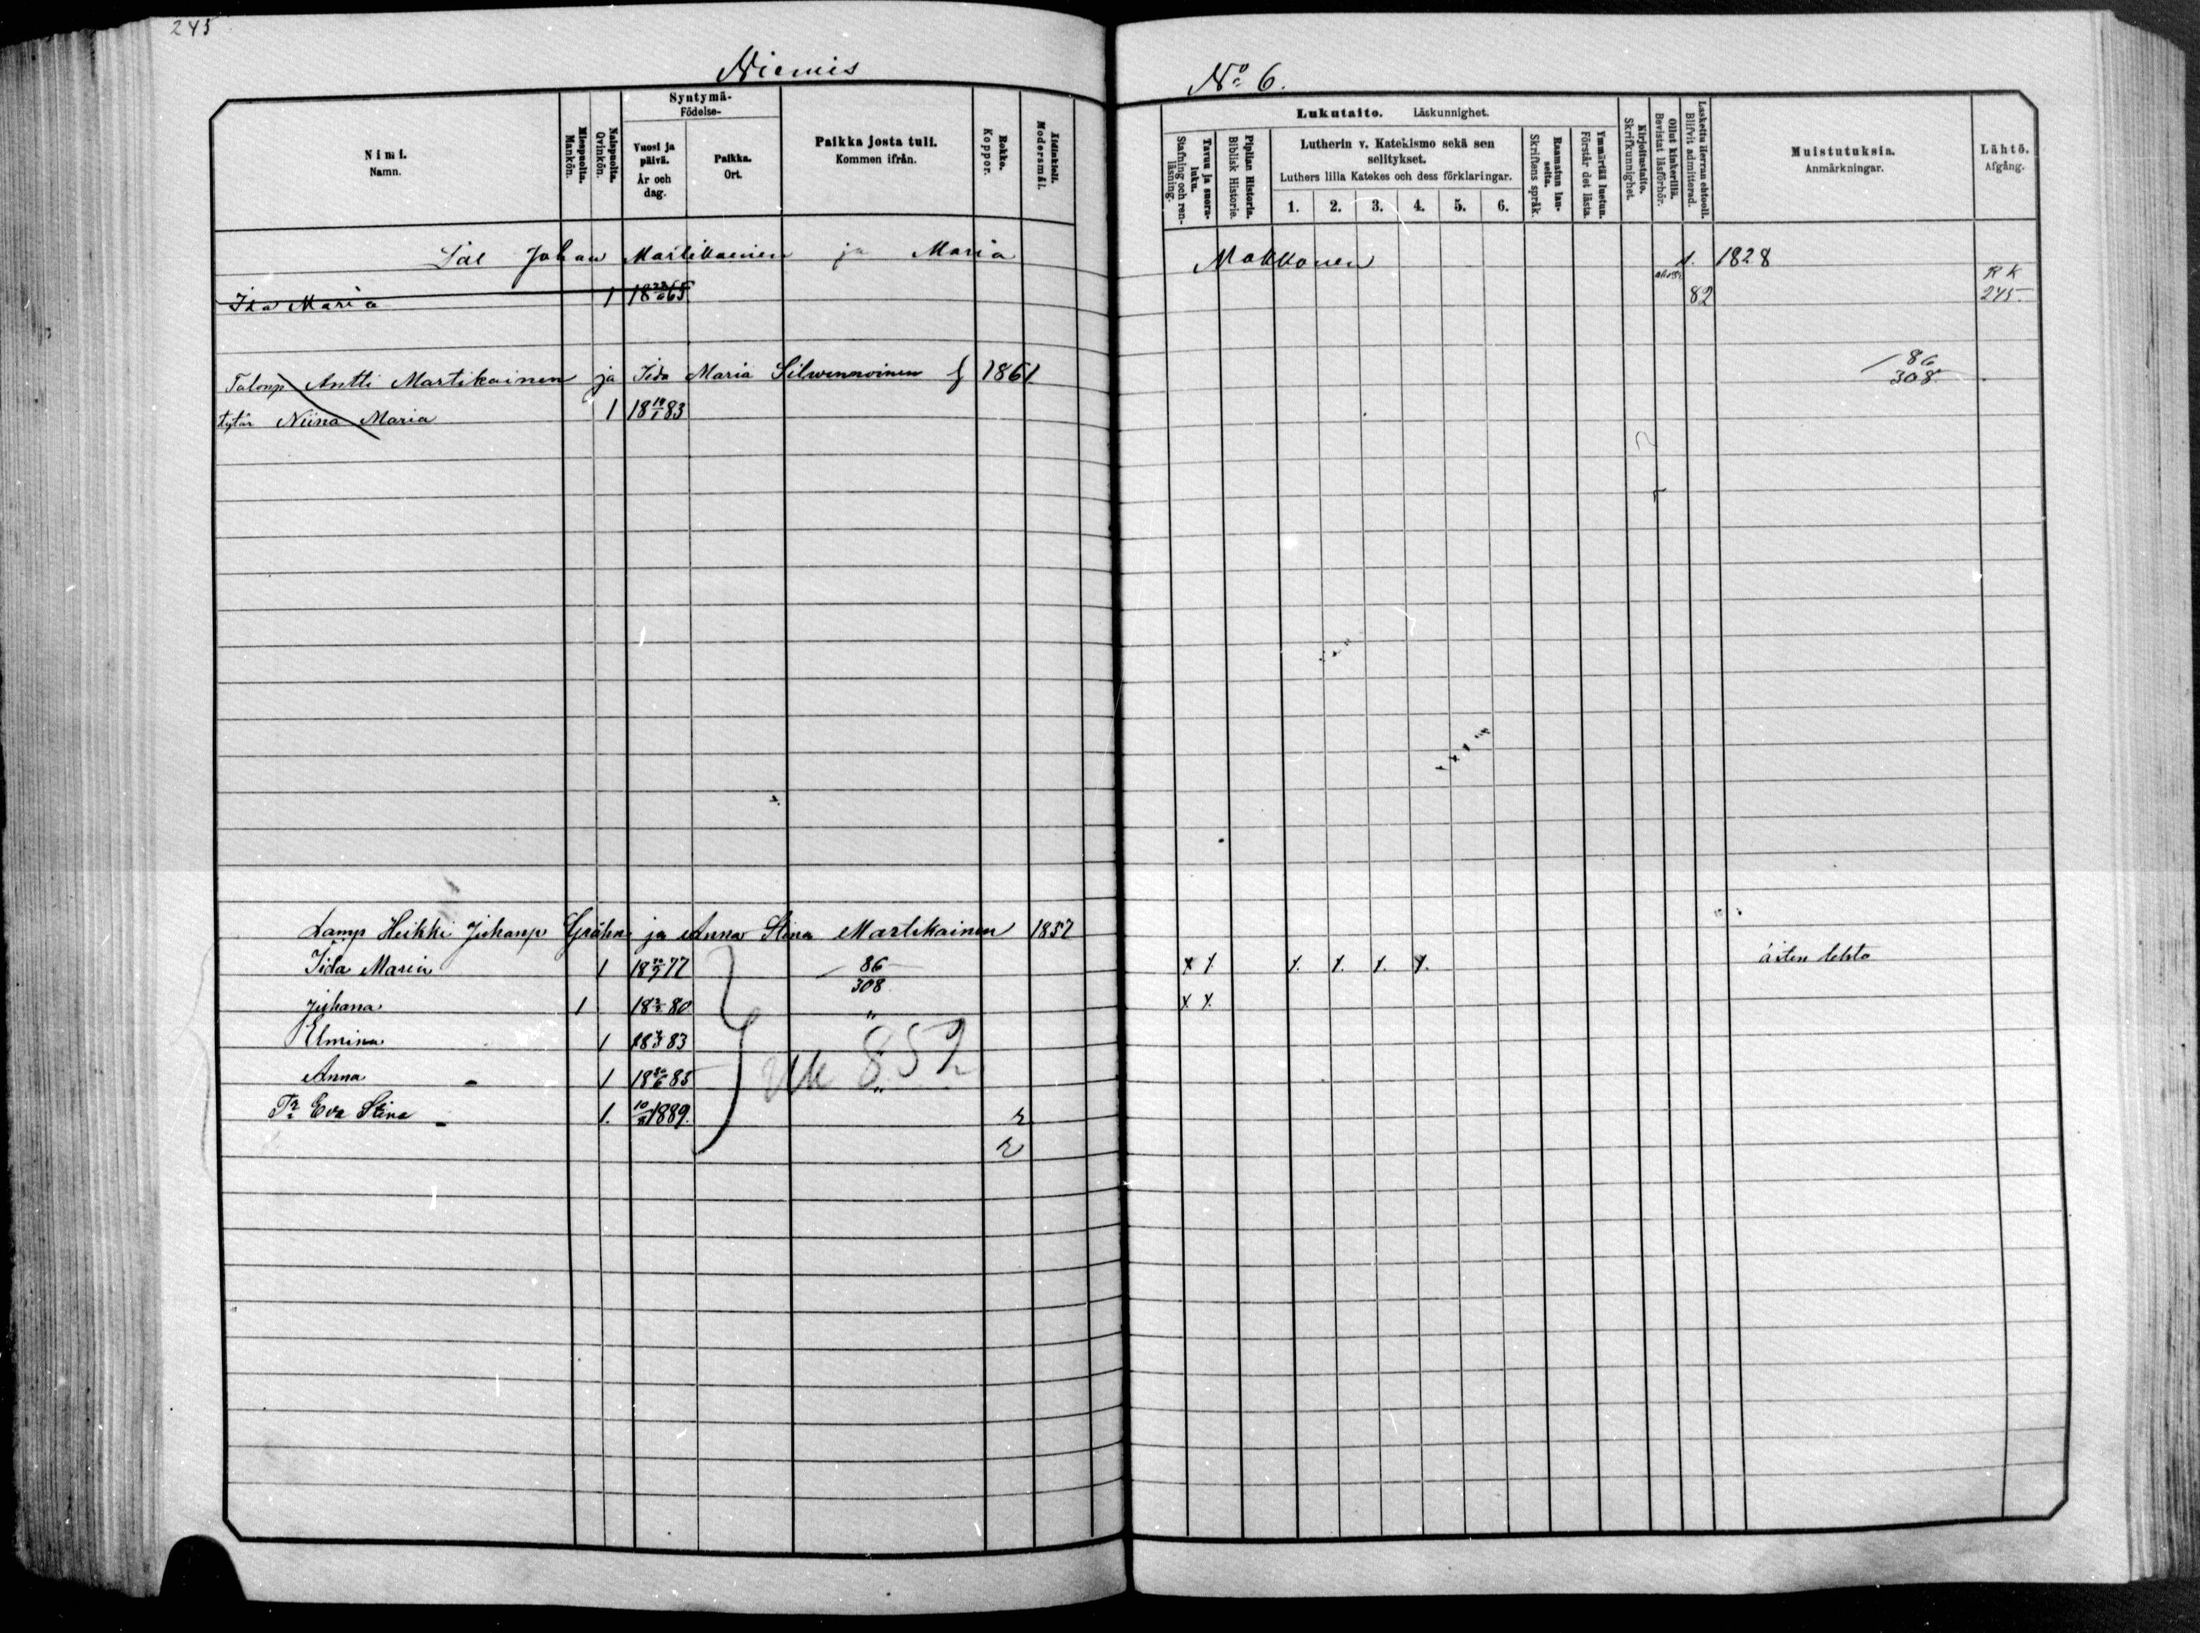 245
Niemis
No 6.
Nimi.
Namn.
Miespuolta.
Mankön.
Naispuolta.
Qvinkön.
Syntymä-
Födelse-
Vuosi ja päivä.
År och dag.
Paikka.
Ort.
Paikka josta tuli.
Kommen ifrån.
Rokko.
Koppor.
Äidinkieli.
Modersmål.
Lukutaito. Läskunnighet.
Tavuu ja suora-luku.
Stafning och ren-läsning.
Piplian Historia.
Biblisk Historie.
Lutherin v. Katekismo sekä sen selitykset.
Luthers lilla Katekes och dess förklaringar.
1. 2. 3. 4. 5. 6.
Raamatun lau-seita.
Skriftens språk.
Ymmärtää luetun.
Förstår det lästa.
Kirjoitustaito.
Skrifkunnighet.
Ollut kinkerillä.
Bevistat läsförhör.
Laskettu Herran ehtooll.
Blifvit admitterad.
Muistutuksia.
Anmärkningar.
Lähtö.
Afgång.
Johan Martikainen ja Maria Makkonen 1. 1828
Ida Maria 1 18 65 82 RK 245
Talonp Antti Martikainen ja Iida Maria Silwennoinen 1861 86 308
tytär Niina Maria 1 18 10/1 83
Lamp Heikki Juhanp Gröhn ja Anna Stina Martikainen 1857
Iida Maria 1 18 77 86 308 x x x. x. x. x. äiten lehto
Juhana 1 18 80 " x x
Elmina 1 18 83
Anna 1 18 85 "
852
Tr Eva Stina 1. 10 1889. r
r